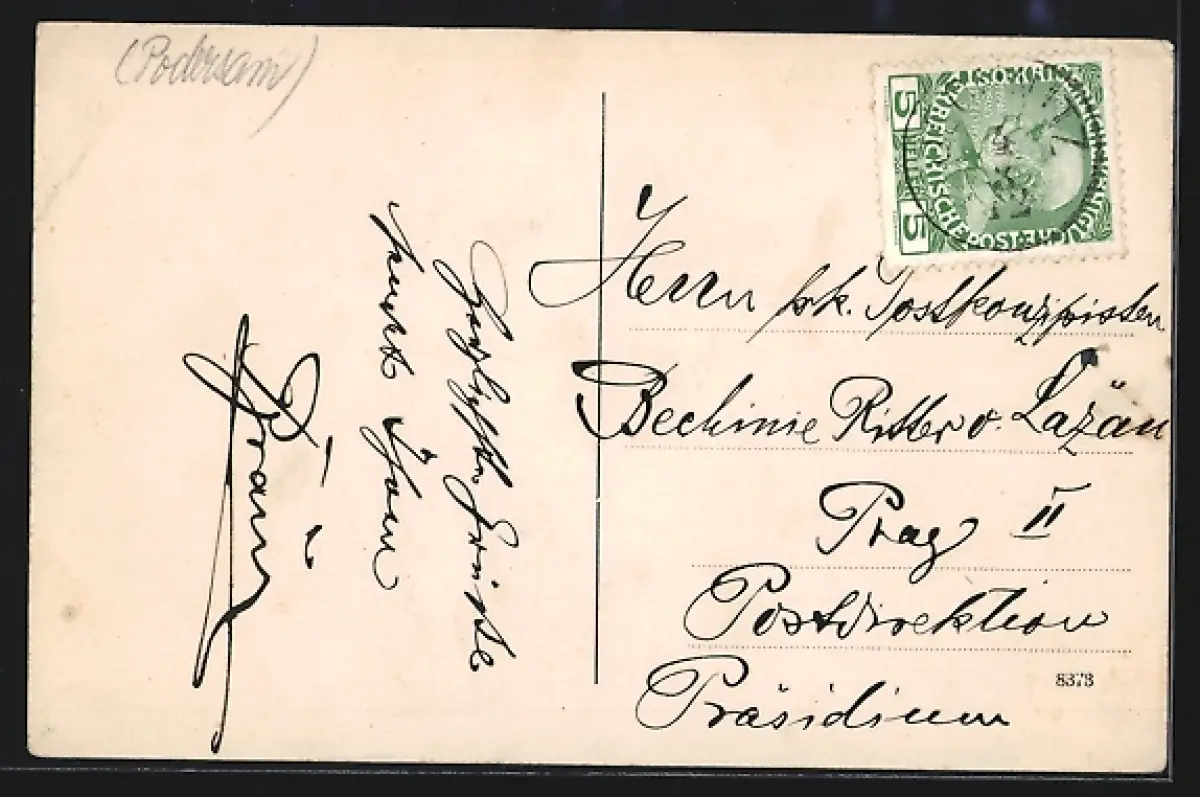 (Podersam)
Herzlichste Grüße
sendet Ihnen
Braun
5 HELLER 5
KAISERLICHE KÖNIGLICHE ÖSTERREICHISCHE POST
Herrn k.k. Postkonzipisten
Bechinie Ritter v. Lažan
Prag II
Postdirektion
Präsidium
8373